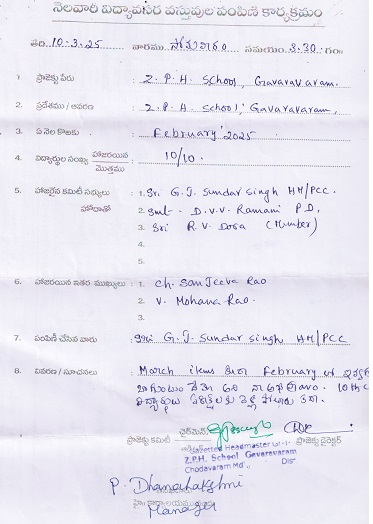 నెలవారీ విద్యావసర వస్తువుల పంపిణీ కార్యక్రమం
తేది. 10-3-25 వారము సోమవారం సమయం. 3.30 గం॥
1. ప్రాజెక్టు పేరు : Z.P.H. School, Gavaravaram.
2. ప్రదేశము / ఆవరణ : Z.P.H. School, Gavaravaram,
3. ఏ నెల కొఱకు : February' 2025
4. విద్యార్థుల సంఖ్య హాజరయిన / మొత్తము : 10/10.
5. హాజరైన కమిటీ సభ్యులు : 1. Sri G.J. Sundar Singh HM/PCC.
హోదాతో 2. Smt. D.V.V. Ramani P.D.
3. Sri R.V. Dora (Member)
4.
5.
6. హాజరయిన ఇతర ముఖ్యులు : 1. Ch. Sanjeeva Rao
2. V. Mohana Rao.
3.
7. పంపిణీ చేసిన వారు : Sri G.J. Sundar Singh HM/PCC
8. వివరణ / సూచనలు : March items కూడా February లో
10th C
ప్రాజెక్టు ఛైర్మన్ ప్రాజెక్టు డైరెక్టర్
Gazetted Headmaster Gr-I
Z.P.H. School Gavaravaram
Chodavaram Md., Dist
P. Dhanalakshmi
Manager